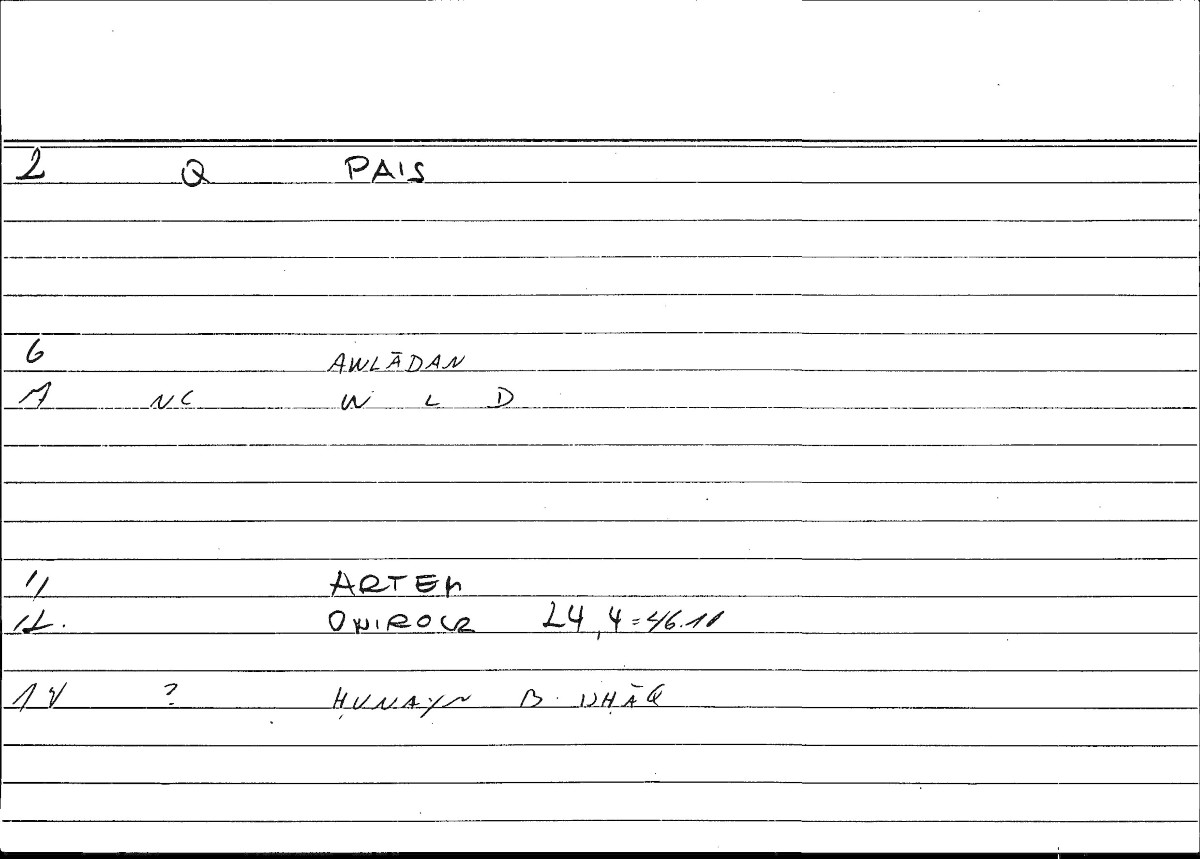 2 Q PAIS
6 AWLĀDAN
7 NC W L D
11 ARTEM
12. ONIROCR 24,4=46.10
14 ? ḤUNAYN B. ISḤĀQ